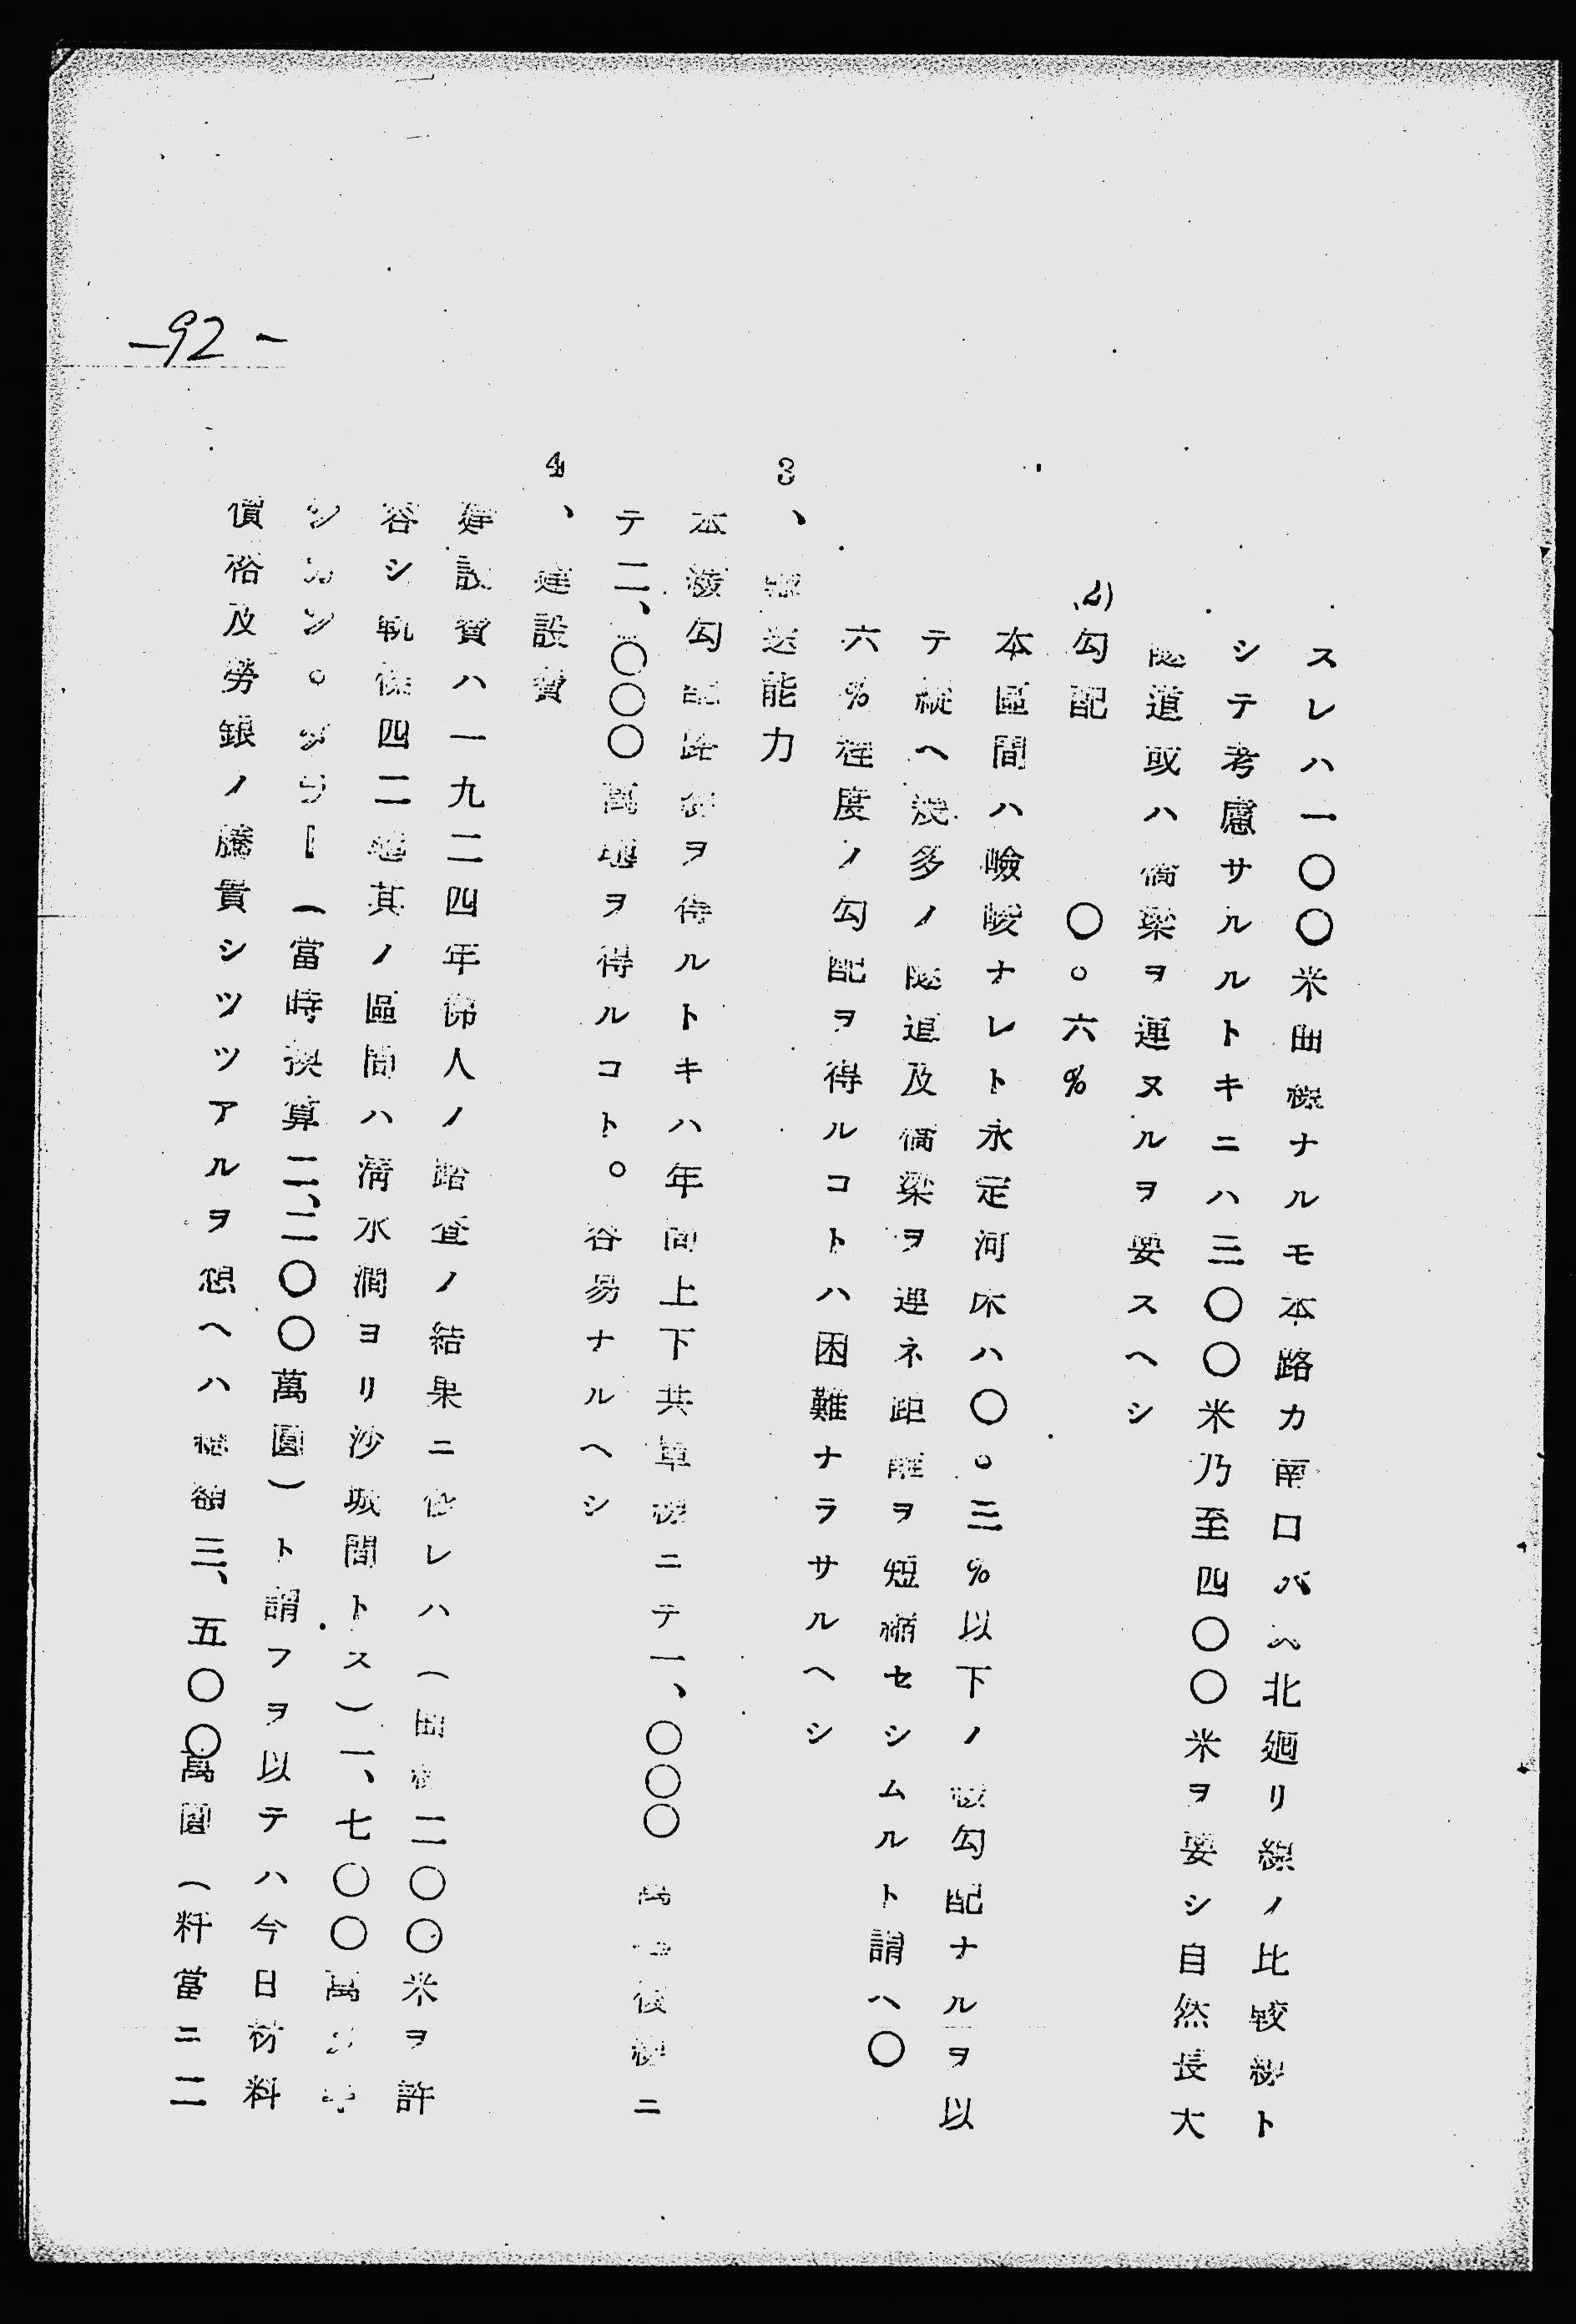 スレハ一〇〇米曲線ナルモ本路カ南口バヘ北廻リ線ノ比較線ト
シテ考慮サルルトキニハ三〇〇米乃至四〇〇米ヲ要シ自然長大
隧道或ハ橋梁ヲ連ヌルヲ要スヘシ
2)勾配 〇。六%
本區間ハ嶮峻ナレト永定河床ハ〇。三%以下ノ緩勾配ナルヲ以
テ縱ヘ幾多ノ隧道及橋梁ヲ連ネ距離ヲ短縮セシムルト謂ヘ〇
六%程度ノ勾配ヲ得ルコトハ困難ナラサルヘシ
3、輸送能力
本緩勾配路線ヲ得ルトキハ年間上下共單線ニテ一、〇〇〇萬 複線ニ
テ二、〇〇〇萬瓲ヲ得ルコト。容易ナルヘシ
4、建設費
建設費ハ一九二四年佛人ノ踏査ノ結果ニ依レハ(曲線二〇〇米ヲ許
容シ軌條四二瓩其ノ區間ハ淸水澗ヨリ沙城間トス)一、七〇〇萬
(當時換算二、二〇〇萬圓)ト謂フヲ以テハ今日材料
價格及勞銀ノ騰貴シツツアルヲ想ヘハ總額三、五〇〇萬圓(粁當ニ二
-92-